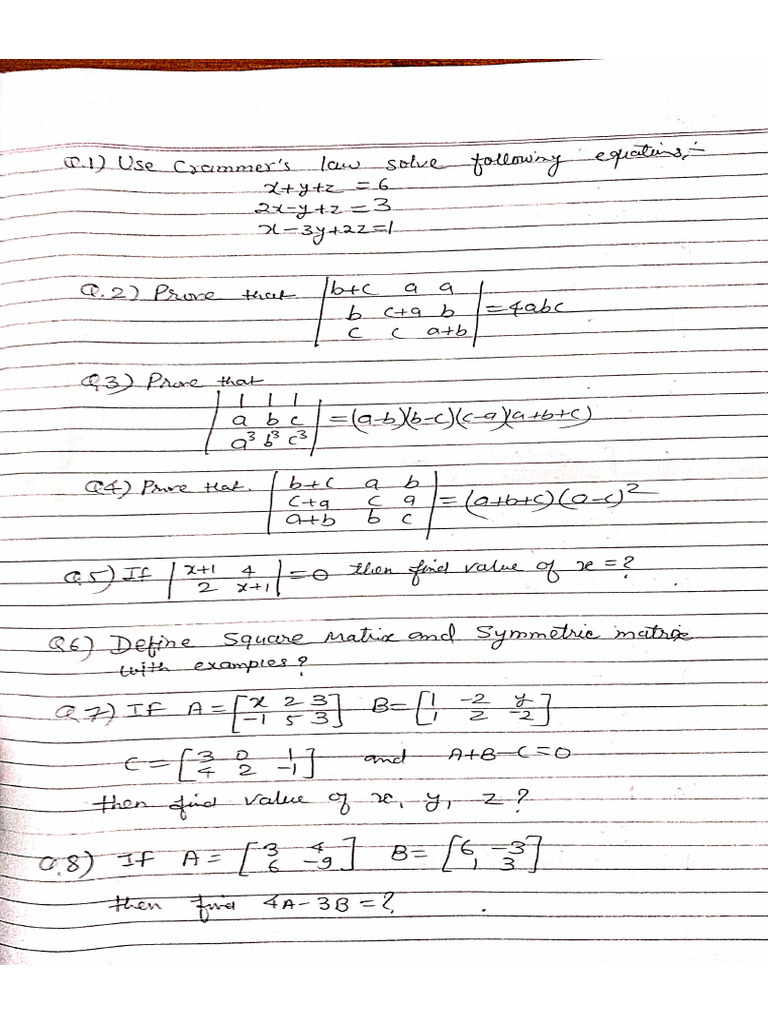 Q.1) Use Crammer's law solve following equations:-
x+y+z = 6
2x-y+z = 3
x-3y+2z=1
Q.2) Prove that | b+c a a |
| b c+a b | = 4abc
| c c a+b |
Q3) Prove that
| 1 1 1 |
| a b c | = (a-b)(b-c)(c-a)(a+b+c)
| a³ b³ c³ |
Q4) Prove that. | b+c a b |
| c+a c a | = (a+b+c)(a-c)²
| a+b b c |
Q.5) If | x+1 4 | = 0 then find value of x = ?
| 2 x+1 |
Q6) Define Square Matrix and Symmetric matrix
with examples?
Q.7) If A = [ x 2 3 ] B = [ 1 -2 y ]
[ -1 5 3 ] [ 1 2 -2 ]
C = [ 3 0 1 ] and A+B-C=0
[ 4 2 -1 ]
then find value of x, y, z ?
Q.8) If A = [ 3 4 ] B = [ 6 -3 ]
[ 6 -9 ] [ 1 3 ]
then find 4A-3B = ?